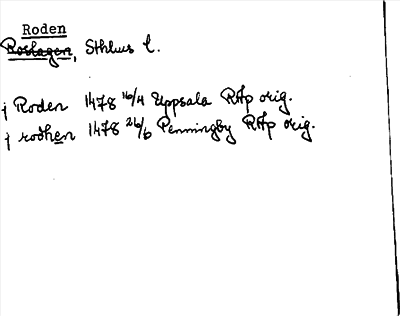 Roden
Roslagen, Sthlms l.
i Roden 1478 16/4 Uppsala RAp orig.
i rodhen 1478 26/6 Penningby RAp orig.